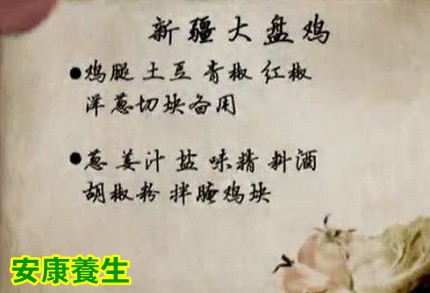 新疆大盘鸡
●鸡腿 土豆 青椒 红椒
洋葱切块备用
●葱 姜汁 盐 味精 料酒
胡椒粉 拌腌鸡块
安康養生